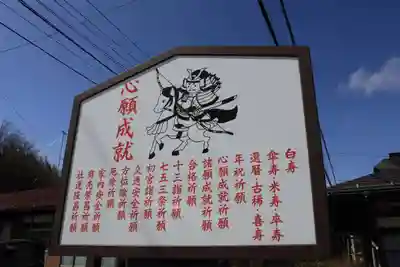 心願成就
白寿
傘寿・米寿・卒寿
還暦・古稀・喜寿
年祝祈願
心願成就祈願
諸願成就祈願
合格祈願
十三詣祈願
七五三祭祈願
初宮詣祈願
交通安全祈願
方位除祈願
厄祭祈願
家内安全祈願
商売繁昌祈願
社運隆昌祈願